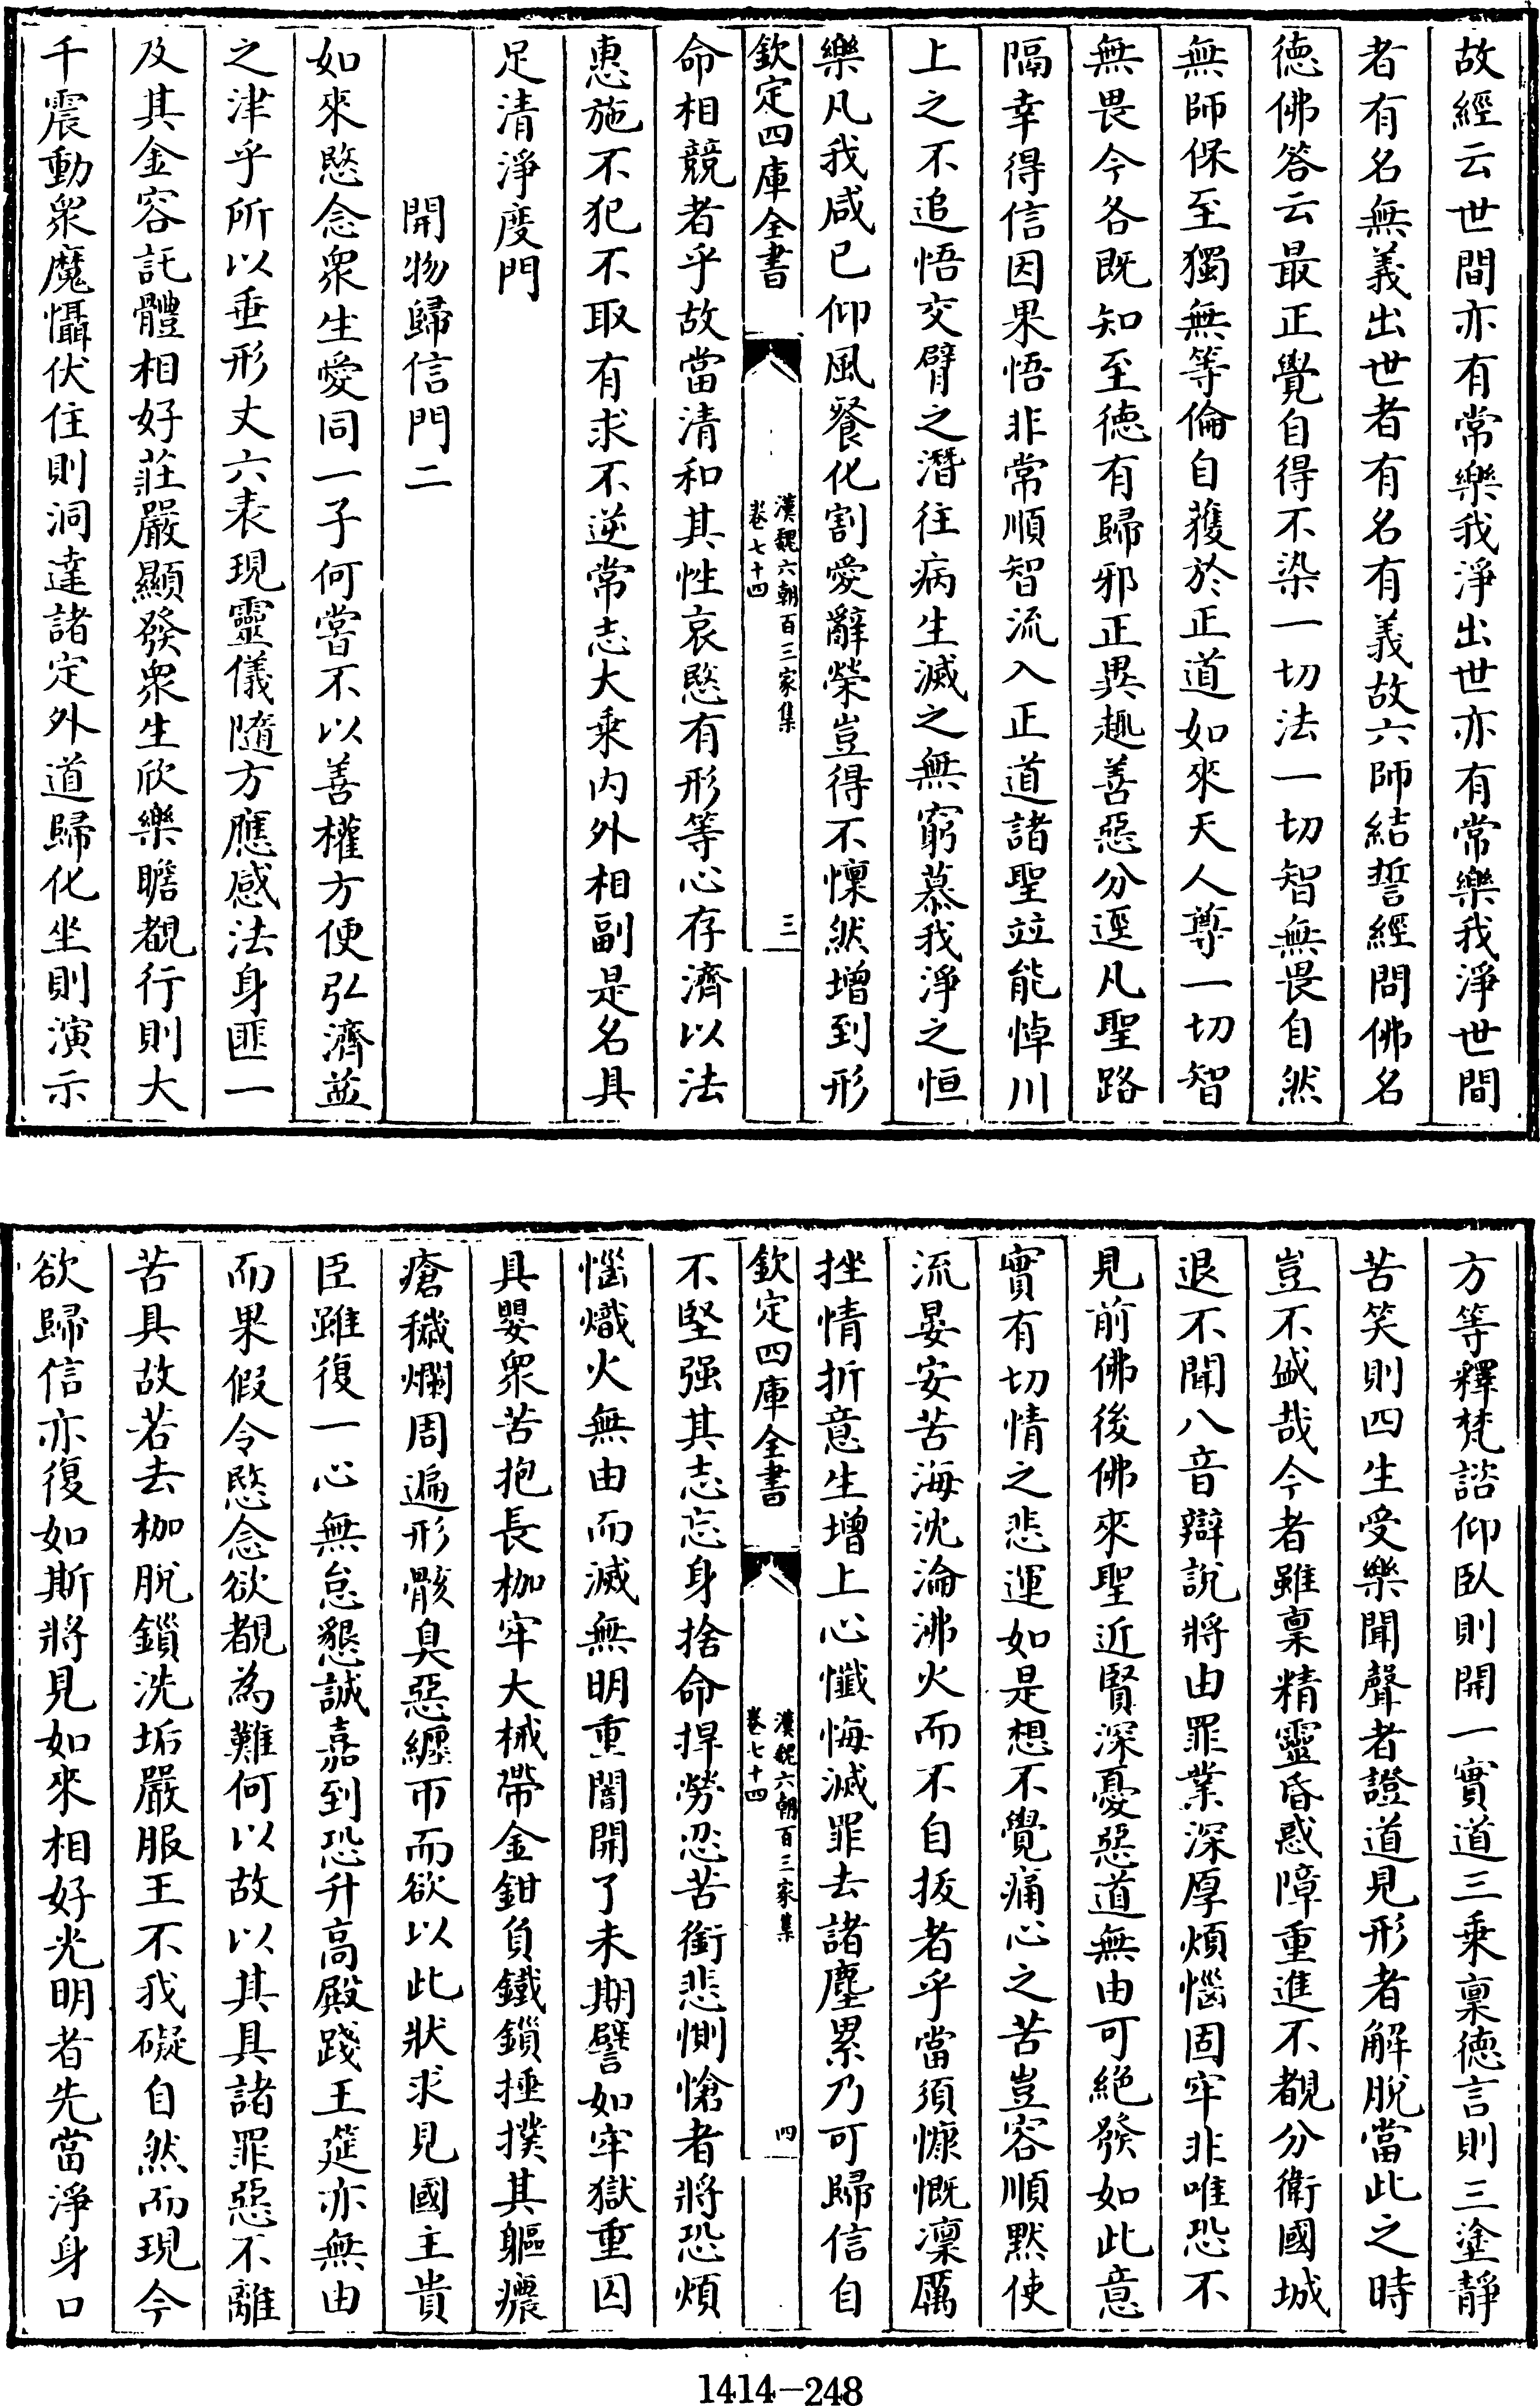 故經云世間亦有常樂我淨出世亦有常樂我淨世間
者有名無義出世者有名有義故六師結誓經問佛名
徳佛答云最正覺自得不染一切法一切智無畏自然
無師保至獨無等倫自獲於正道如來天人尊一切智
無畏今各既知至徳有歸邪正異趣善惡分逕凡聖路
隔幸得信因果悟非常順智流入正道諸聖竝能悼川
上之不追悟交臂之潛往病生滅之無窮慕我淨之恒
樂凡我咸已仰風餐化割愛辭榮豈得不懍然增到形
欽定四庫全書
漢魏六朝百三家集
卷七十四
三
命相競者乎故當清和其性哀愍有形等心存濟以法
惠施不犯不取有求不逆常志大乗内外相副是名具
足清淨度門
開物歸信門二
如來愍念衆生愛同一子何嘗不以善權方便弘濟並
之津乎所以垂形丈六表現靈儀隨方應感法身匪一
及其金容託體相好莊嚴顯發衆生欣樂瞻覩行則大
千震動衆魔懾伏住則洞達諸定外道歸化坐則演示
方等釋梵諮仰臥則開一實道三乗稟徳言則三塗靜
苦笑則四生受樂聞聲者證道見形者解脫當此之時
豈不盛哉今者雖稟精靈昏惑障重進不覩分衛國城
退不聞八音辯說將由罪業深厚煩惱固牢非唯恐不
見前佛後佛來聖近賢深憂惡道無由可絶發如此意
實有切情之悲運如是想不覺痛心之苦豈容順黙使
流晏安苦海沈淪沸火而不自拔者乎當須慷慨凜厲
挫情折意生增上心懺悔滅罪去諸塵累乃可歸信自
欽定四庫全書
漢魏六朝百三家集
卷七十四
四
不堅强其志忘身捨命捍勞忍苦銜悲惻愴者將恐煩
惱熾火無由而滅無明重闇開了未期譬如牢獄重囚
具嬰衆苦抱長枷牢大械帶金鉗負鐵鎖捶撲其軀癑
瘡穢爛周遍形骸臭惡纏帀而欲以此狀求見國主貴
臣雖復一心無怠懇誠嘉到恐升高殿踐王筵亦無由
而果假令愍念欲覩為難何以故以其具諸罪惡不離
苦具故若去枷脫鎖洗垢嚴服王不我礙自然而現今
欲歸信亦復如斯將見如來相好光明者先當淨身口
1414-248